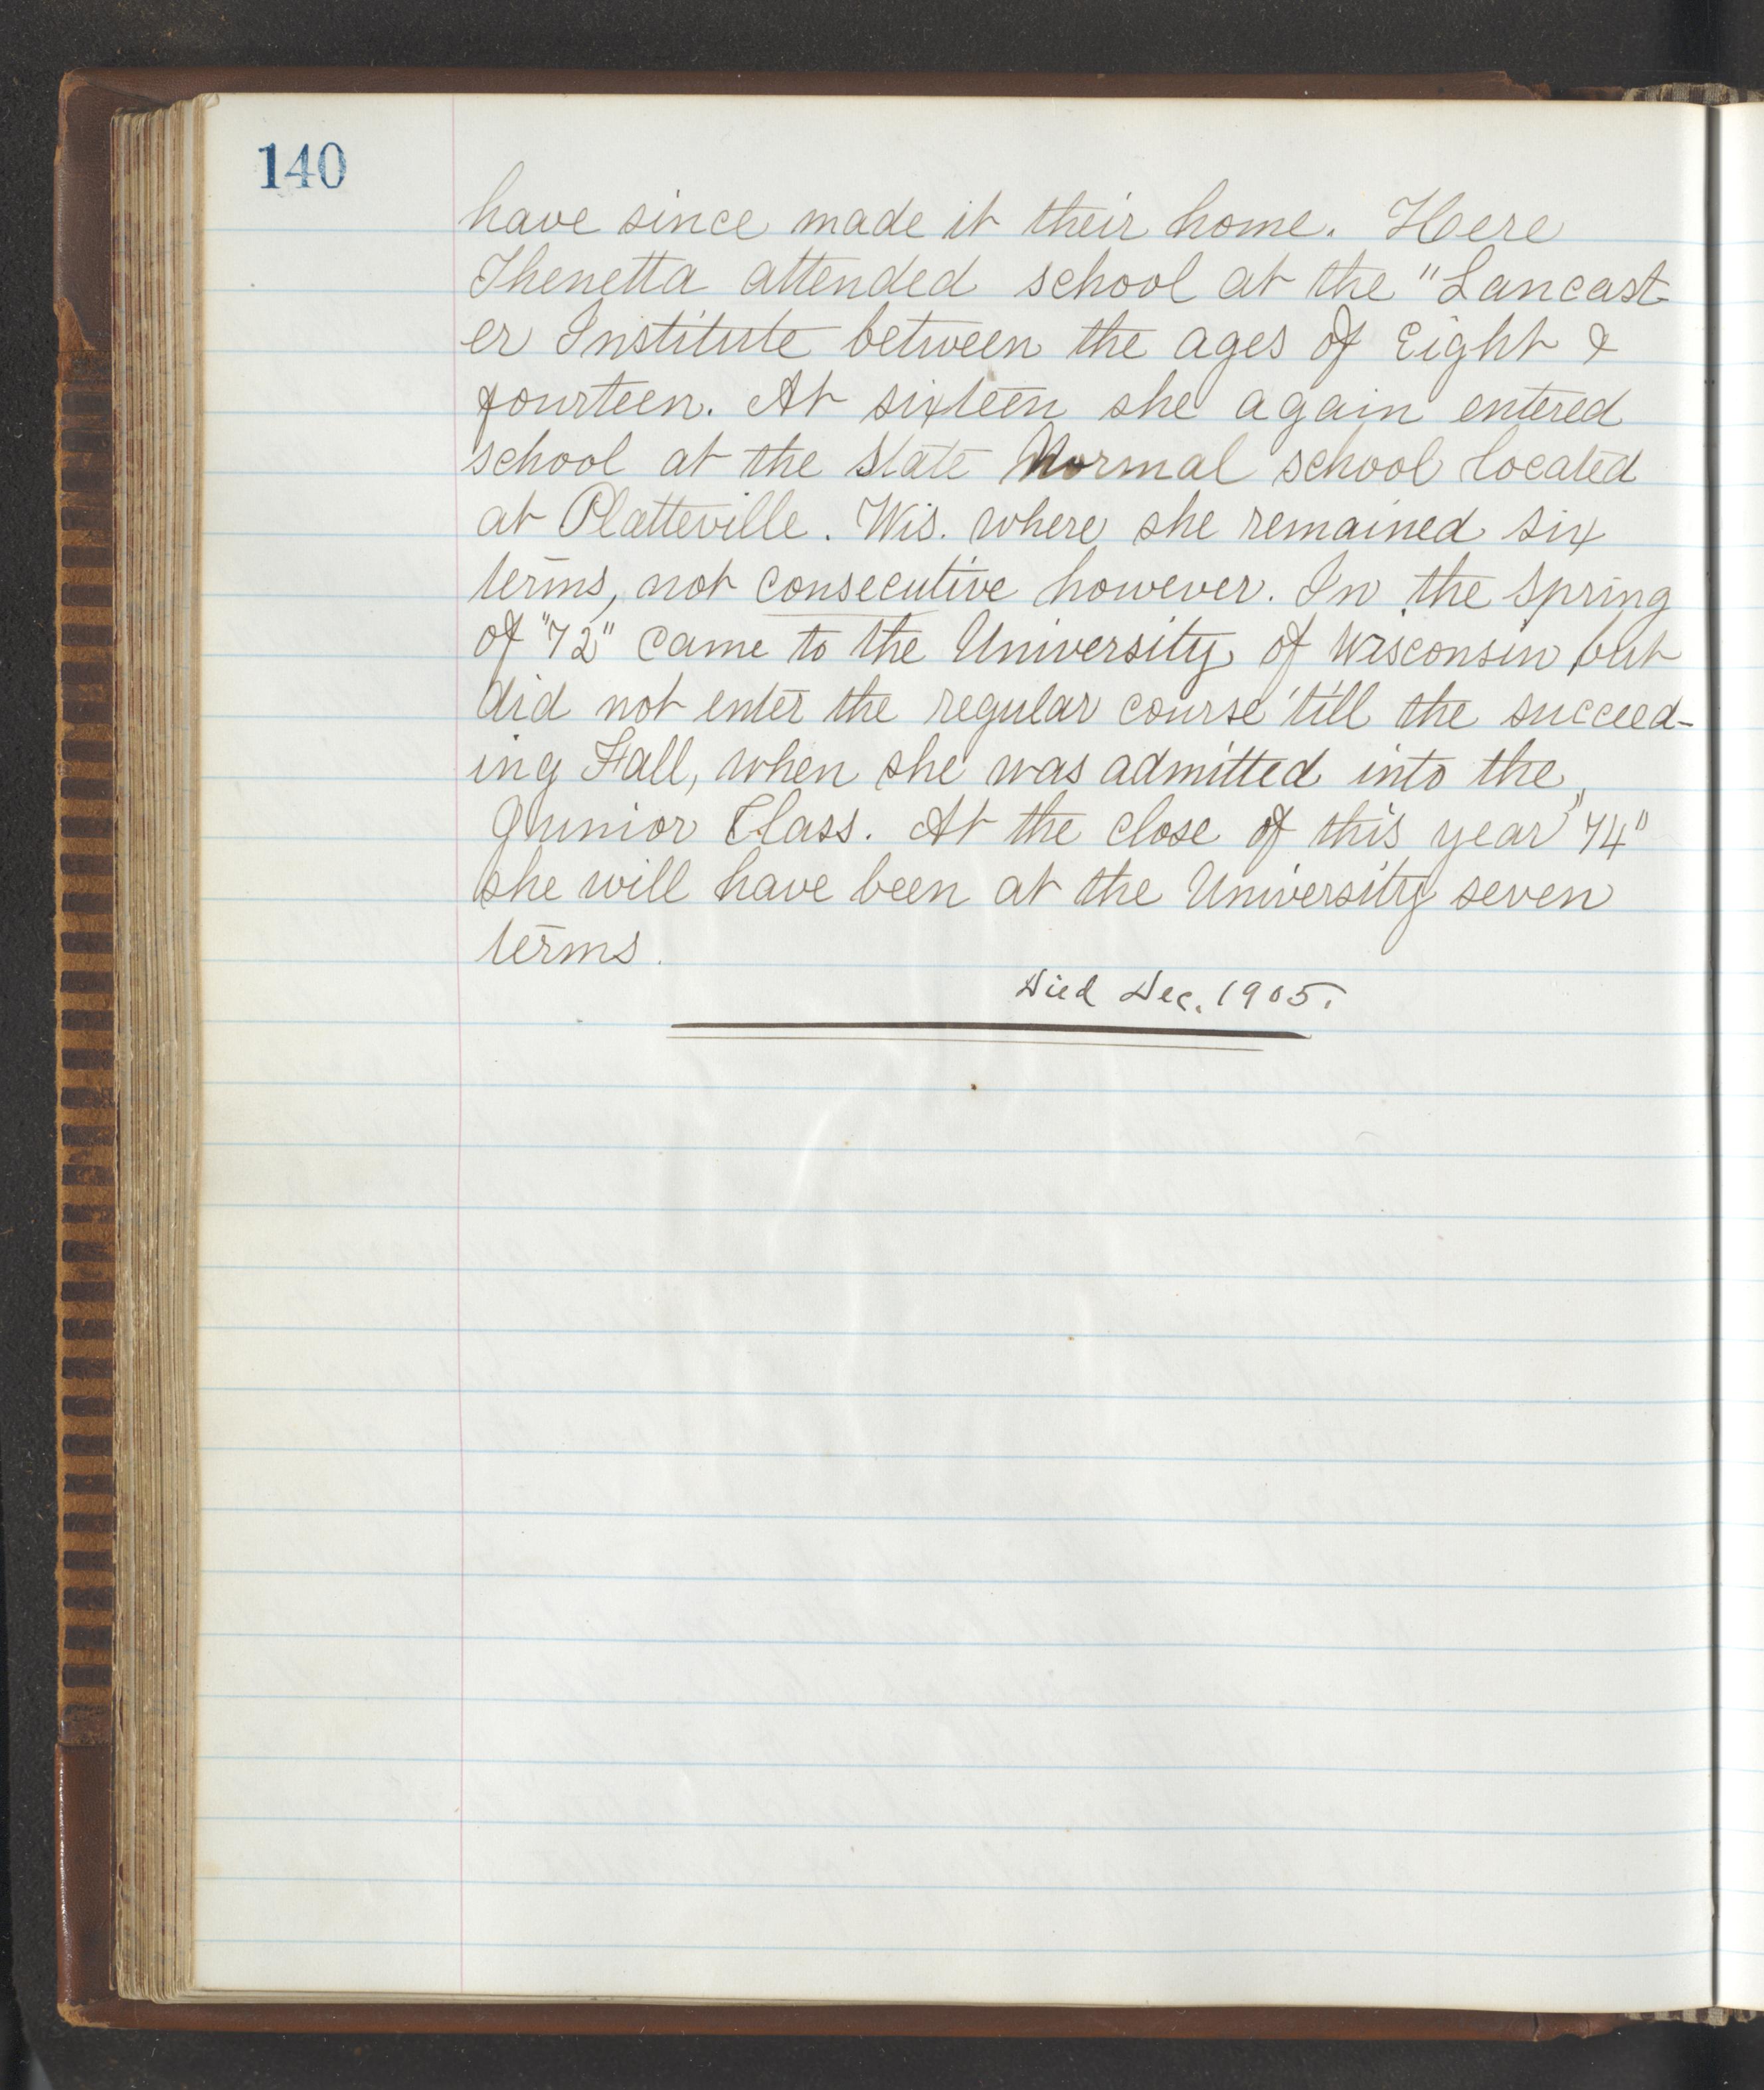 140
have since made it their home. Here
Thenetta attended school at the "Lancast-
er Institute between the ages of Eight &
fourteen. At sixteen she again entered
school at the State Normal school located
at Platteville. Wis. where she remained six
terms, not consecutive however. In the Spring
of "72" came to the University of Wisconsin, but
did not enter the regular course 'till the succeed-
ing Fall, when she was admitted into the
Junior Class. At the close of this year "74"
she will have been at the University seven
terms.
Died Dec. 1905.